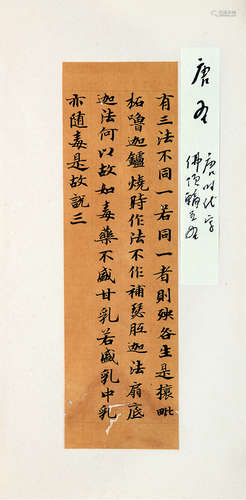 有三法不同一若同一者則殃咎生是攘毗
柘嚕迦鑪燒時作法不作補瑟胝迦法扇底
迦法何以故如毒藥不盛甘乳若盛乳中乳
亦随毒是故說三
唐
唐時代